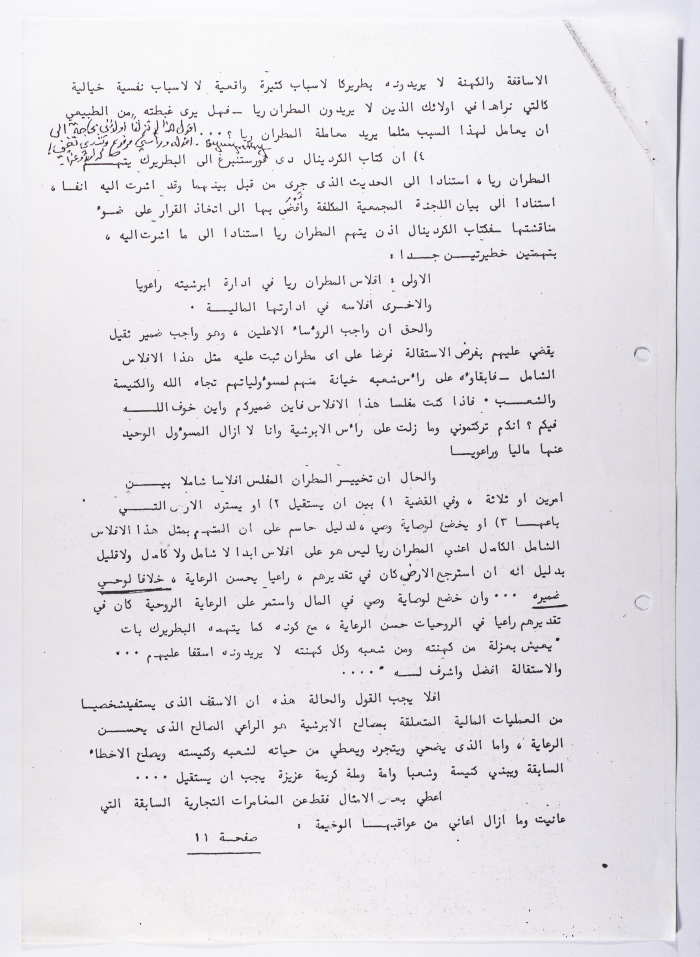 الاساقفة والكهنة لا يريدونه بطريركا لاسباب كثيرة واقعية لا لاسباب نفسية خيالية
كالتي نراها في اولائك الذين لا يريدون المطران ريا – فهل يرى غبطته من الطبيعي
ان يعامل لهذا السبب مثلما يريد معاملة المطران ريا ؟ ...
٤) ان كتاب الكردينال دى فورستنبرغ الى البطريرك يتهم
المطران ريا ، استنادا الى الحديث الذى جرى من قبل بينهما وقد اشرت اليه انفا ،
استنادا الى بيان اللجنة المجمعية المكلفة وأفضى بها الى اتخاذ القرار على ضوء
مناقشتها – فكتاب الكردينال اذن يتهم المطران ريا استنادا الى ما اشرت اليه ،
بتهمتين خطيرتين جدا :
الاولى : افلاس المطران ريا في ادارة ابرشيته راعويا
والاخرى افلاسه في ادارتها المالية .
والحق ان واجب الروءساء الاعلين ، وهو واجب ضمير ثقيل
يقضي عليهم بفرض الاستقالة فرضا على اى مطران ثبت عليه مثل هذا الافلاس
الشامل – فابقاوءه على راءس شعبه خيانة منهم لمسوءولياتهم تجاه الله والكنيسة
والشعب . فاذا كنت مفلسا هذا الافلاس فاين ضميركم واين خوف الله
فيكم ؟ انكم تركتموني وما زلت على راءس الابرشية وانا لا ازال المسوءول الوحيد
عنها ماليا وراعويا
والحال ان تخيير المطران المفلس افلاسا شاملا بين
امرين او ثلاثة ، وفي القضية ١) بين ان يستقيل ٢) او يسترد الارض التي
باعها ٣) او يخضع لوصاية وصي ، لدليل حاسم على ان المتهم بمثل هذا الافلاس
الشامل الكامل اعني المطران ريا ليس هو على افلاس ابدا لا شامل ولا كامل ولا قليل
بدليل انه ان استرجع الارض كان في تقديرهم ، راعيا يحسن الرعاية ، خلافا لوحي
ضميره ... وان خضع لوصاية وصي في المال واستمر على الرعاية الروحية كان في
تقديرهم راعيا في الروحيات حسن الرعاية ، مع كونه كما يتهمه البطريرك بات
"يعيش بعزلة من كهنته ومن شعبه وكل كهنته لا يريدونه اسقفا عليهم ...
والاستقالة افضل واشرف له " ....
افلا يجب القول والحالة هذه ان الاسقف الذى يستفيد شخصيا
من العمليات المالية المتعلقة بمصالح الابرشية هو الراعي الصالح الذى يحسن
الرعاية ، واما الذى يضحي ويتجرد ويعطي من حياته لشعبه وكنيسته ويصلح الاخطاء
السابقة ويبني كنيسة وشعبا وامة وملة كريمة عزيزة يجب ان يستقيل ....
اعطي بعض الامثال فقط عن المغامرات التجارية السابقة التي
عانيت وما ازال اعاني من عواقبها الوخيمة :
صفحة ١١